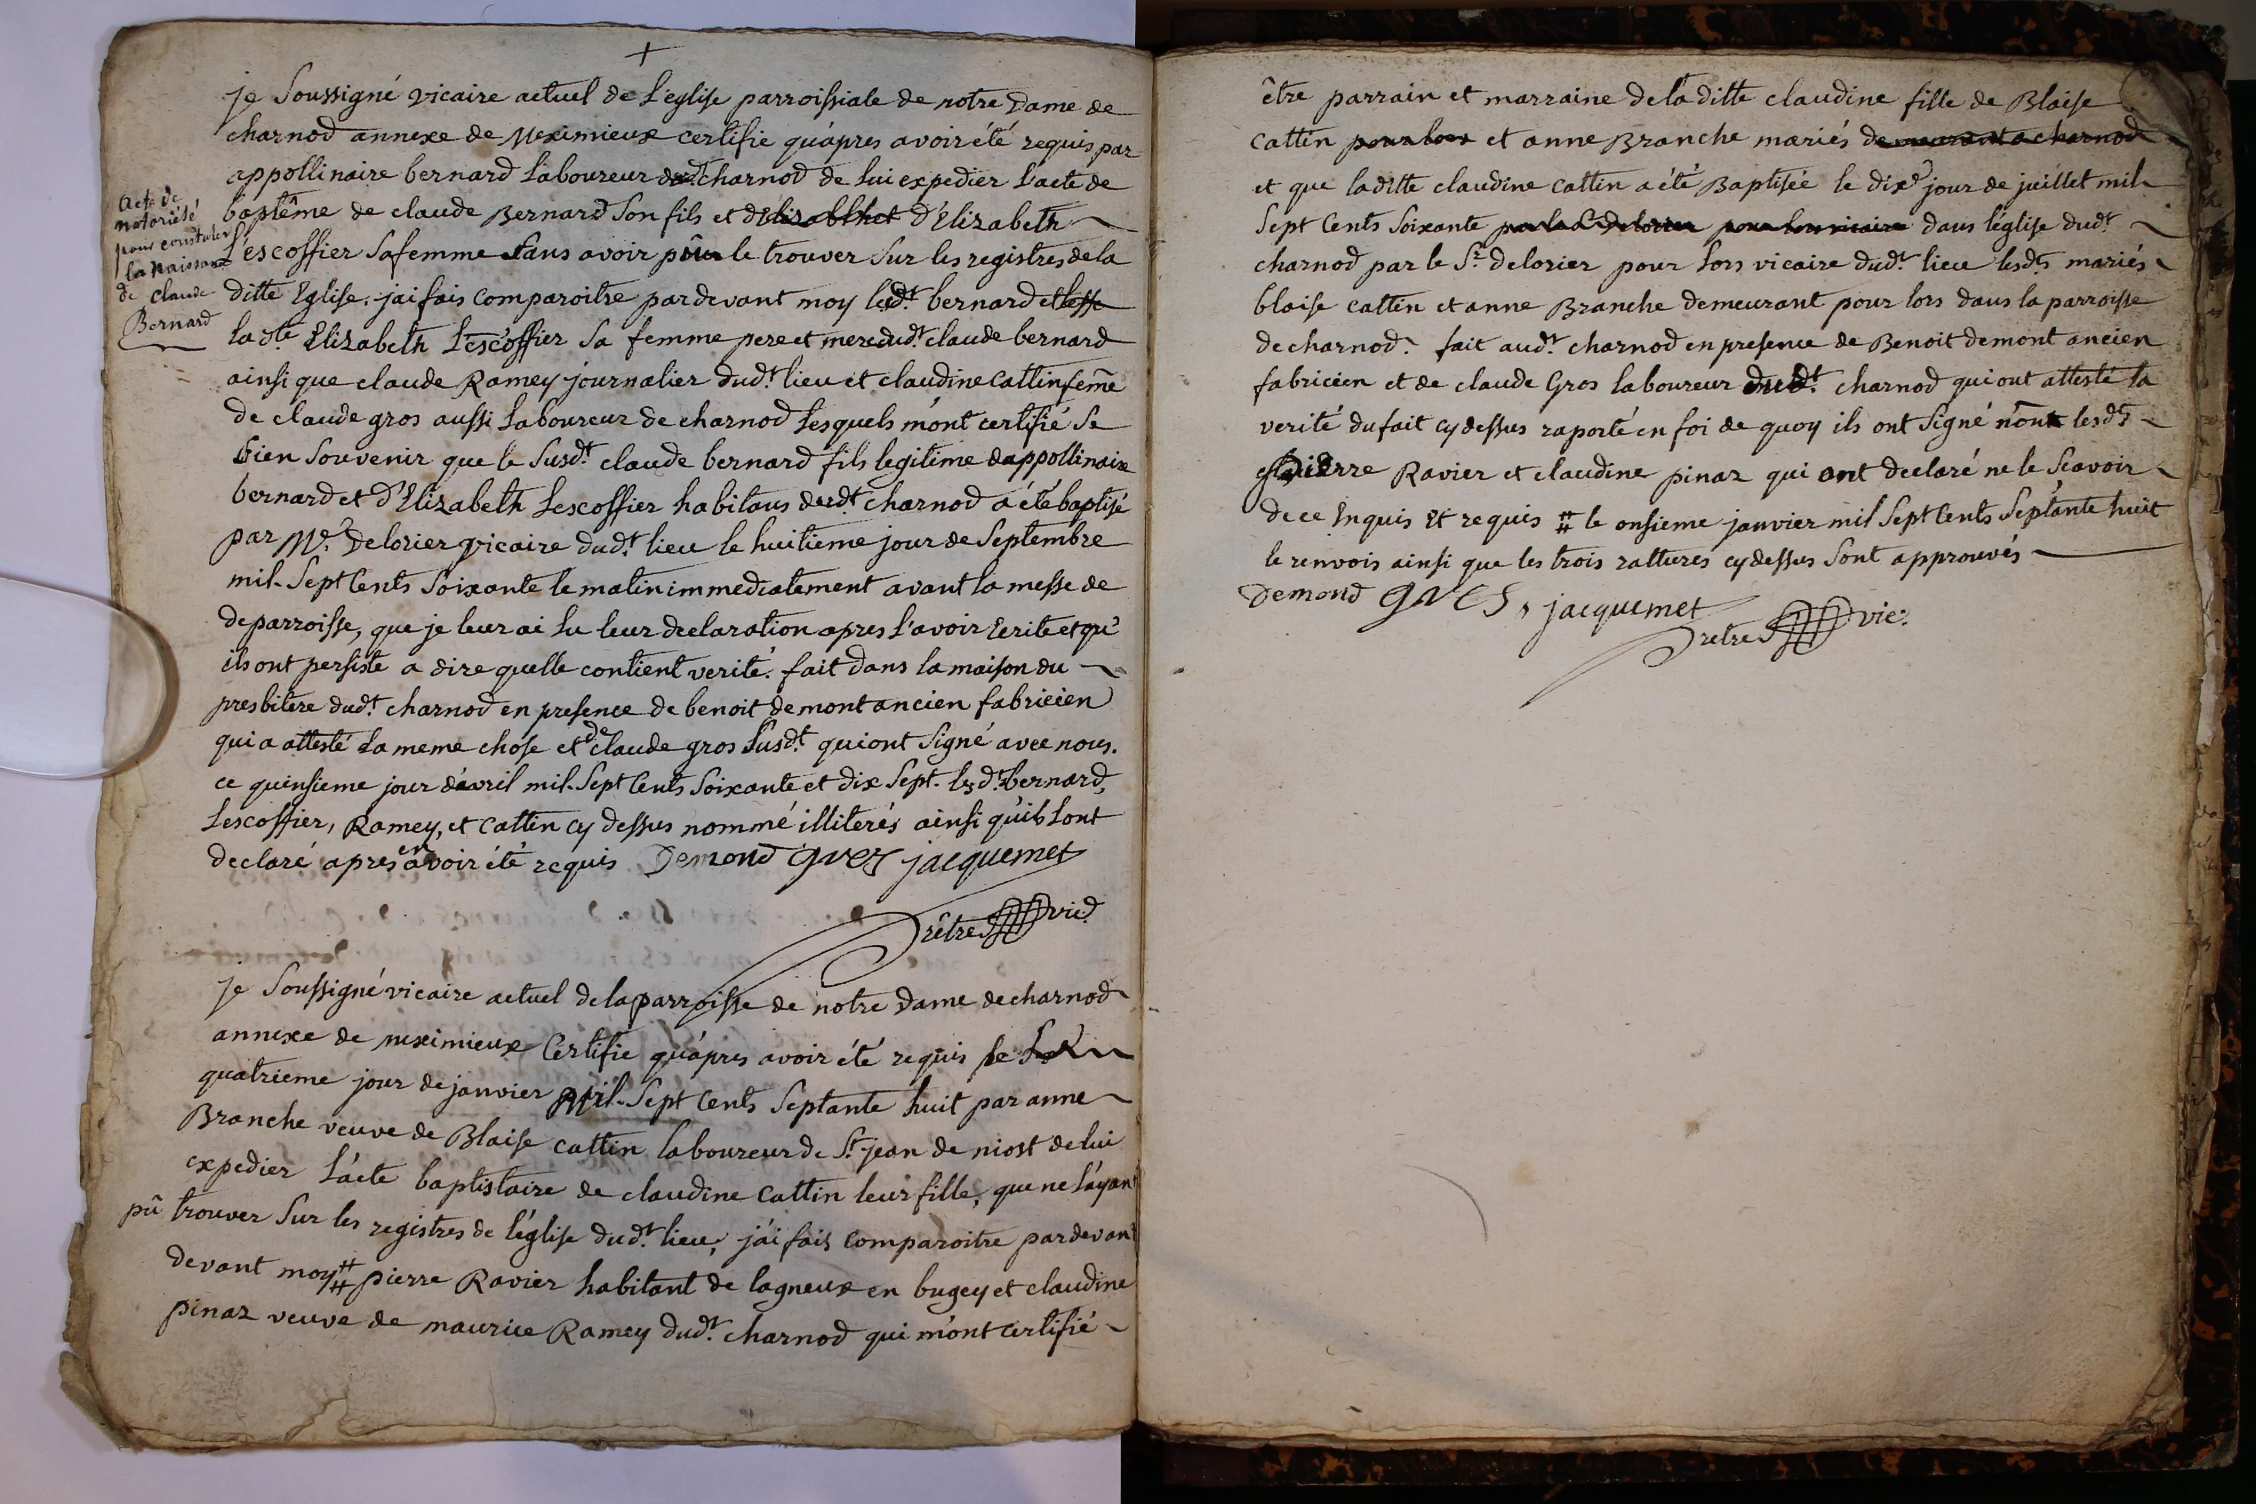 +
je Soussigné vicaire actuel de L'eglise parroissiale de notre Dame de
charnod annexe de Meximieux certifie qu'apres avoir été requis par
appollinaire bernard Laboureur dudt charnod de lui expedier L'acte de
baptême de claude Bernard Son fils et d'Elizabthet d'Elizabeth
L'escoffier Sa femme Sans avoir pûur le trouver Sur les registres de la
ditte Eglise. jai fais comparoitre pardevant moy ledt. bernard et lesse
la dte Elizabeth L'escoffier Sa femme pere et mere dudt. claude bernard
ainsi que claude Ramey journalier dudt. lieu et claudine Cattin feme
de claude gros aussi Laboureur de charnod Lesquels m'ont certifié Se
bien Souvenir que le Susdt. claude bernard fils legitime dappollinaire
bernard et d'Elizabeth Lescoffier habitans dudt. charnod a été baptisé
par Mr. Delorier vicaire dudt. lieu le huitieme jour de Septembre
mil-Sept Cents Soixante le matin immediatement avant la messe de
de parroisse, que je leur ai Lu leur declaration apres L'avoir Ecrite et qu'
ils ont persisté a dire quelle contient verité. fait dans la maison du
presbitere dudt. charnod en presence de benoit demont ancien fabricien
qui a attesté La meme chose et de claude gros Susdt. qui ont Signé avec nous.
ce quinsieme jour d'avril mil-Sept Cents Soixante et dix Sept. lesdt. bernard,
Lescoffier, Ramey, et Cattin cy dessus nommé illiterés ainsi qu'ils Lont
declaré apres en avoir été requis Demond gros jacquemet
Prêtre vic.
Acte de
notoriété
pour constater
la Naissance
de Claude
Bernard
je Soussigné vicaire actuel de la parroisse de notre Dame de charnod
annexe de meximieux Certifie qu'apres avoir été requis le
quatrieme jour de janvier Mil-Sept Cents Septante huit par anne
Branche veuve de Blaise cattin laboureur de St. jean de niost de lui
expedier L'acte baptistaire de claudine Cattin leur fille, que ne L'ayant
pû trouver Sur les registres de l'église dudt. lieu, j'ai fais comparoitre pardevant
devant moy # pierre Ravier habitant de lagneux en bugey et claudine
pinaz veuve de maurice Ramey dudt. charnod qui m'ont certifié
être parrain et marraine de la ditte claudine fille de Blaise
Cattin pour lors et anne Branche mariés demeurant a charnod
et que la ditte claudine Cattin a été Baptisée le dixe jour de juillet mil
Sept Cents Soixante par le Sr Delorier pour lors vicaire dans l'église dudt.
charnod par le Sr. delorier pour Lors vicaire dudt. lieu lesdts mariés
blaise cattin et anne Branche demeurant pour lors dans la parroisse
de charnod. fait audt. charnod en presence de Benoit demont ancien
fabricien et de claude Gros laboureur dudt. charnod qui ont attesté la
verité du fait cy dessus raporté en foi de quoy ils ont Signé non lesdts
pierre Ravier et claudine pinaz qui ont declaré ne le Scavoir
de ce Enquis Et requis # le onsieme janvier mil Sept Cents Septante huit
le renvois ainsi que les trois rattures cy dessus Sont approuvés
Demond gros, jacquemet
Pretre vic.